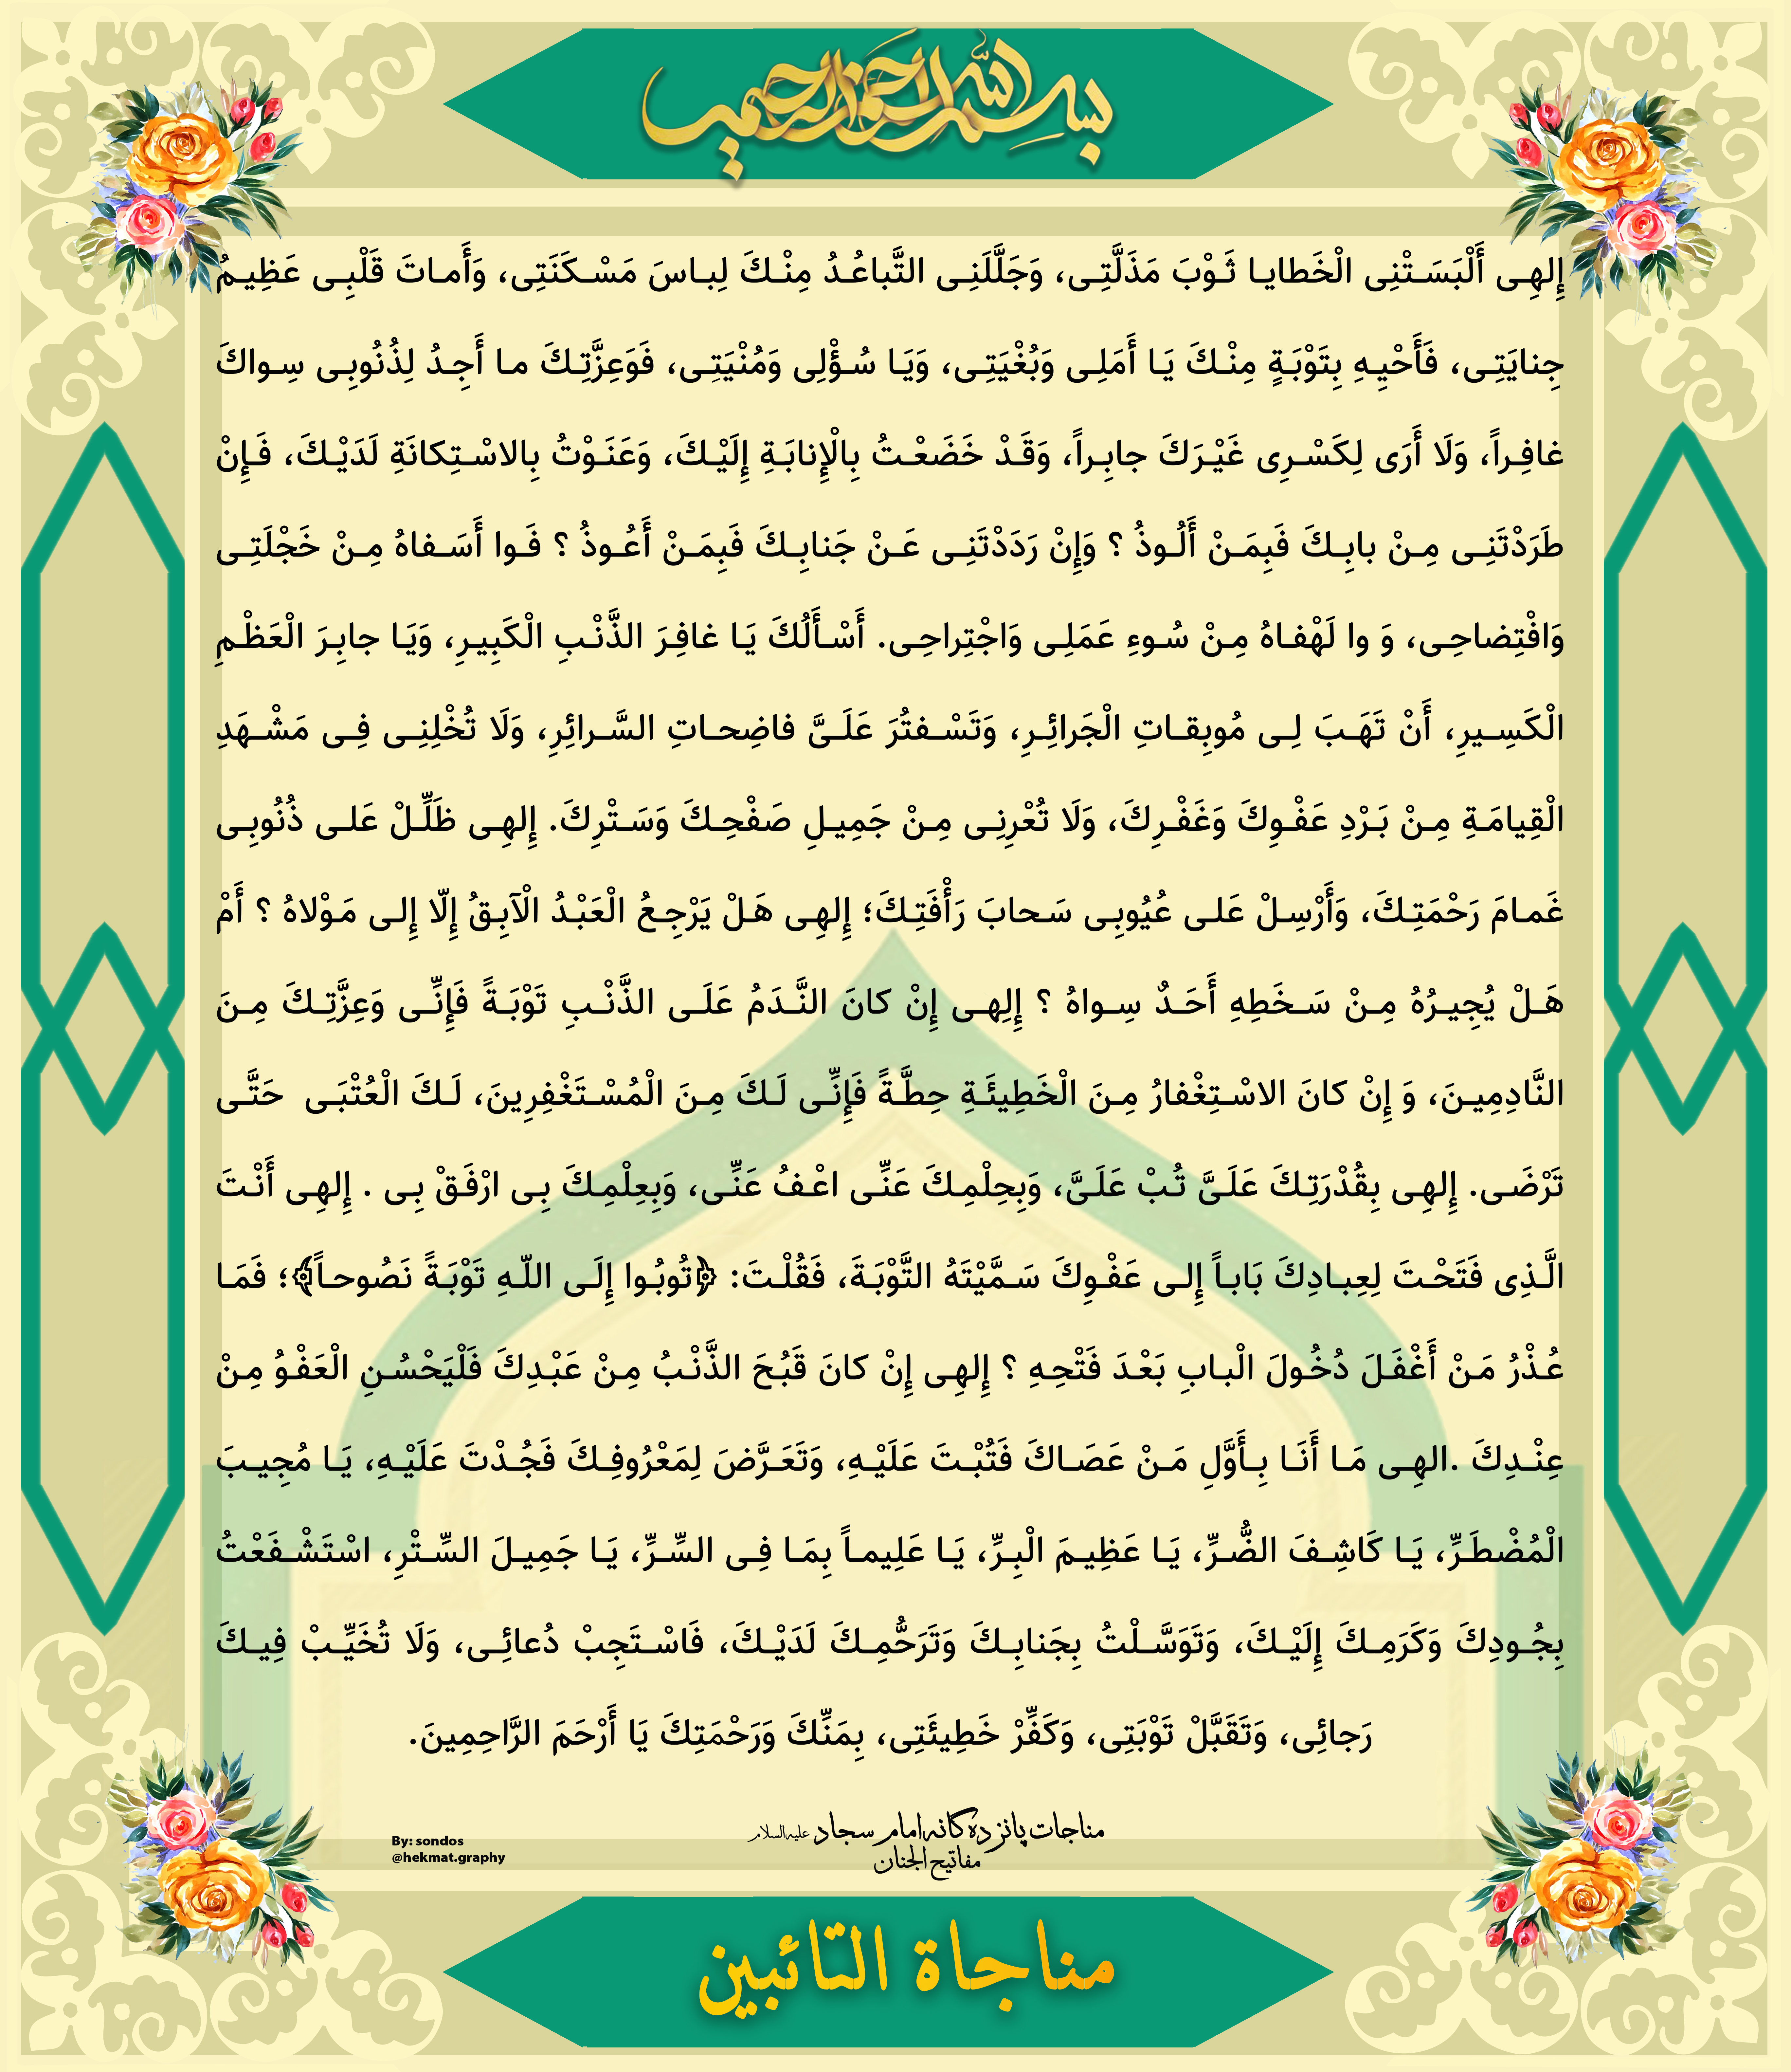 بسم الله الرحمن الرحیم
إِلهِی أَلْبَسَتْنِی الْخَطایا ثَوْبَ مَذَلَّتِی، وَجَلَّلَنِی التَّباعُدُ مِنْکَ لِباسَ مَسْکَنَتِی، وَأَماتَ قَلْبِی عَظِیمُ
جِنایَتِی، فَأَحْیِهِ بِتَوْبَةٍ مِنْکَ یَا أَمَلِی وَبُغْیَتِی، وَیَا سُؤْلِی وَمُنْیَتِی، فَوَعِزَّتِکَ ما أَجِدُ لِذُنُوبِی سِواکَ
غافِراً، وَلَا أَرَی لِکَسْرِی غَیْرَکَ جابِراً، وَقَدْ خَضَعْتُ بِالْإِنابَةِ إِلَیْکَ، وَعَنَوْتُ بِالاسْتِکانَةِ لَدَیْکَ، فَإِنْ
طَرَدْتَنِی مِنْ بابِکَ فَبِمَنْ أَلُوذُ ؟ وَإِنْ رَدَدْتَنِی عَنْ جَنابِکَ فَبِمَنْ أَعُوذُ ؟ فَوا أَسَفاهُ مِنْ خَجْلَتِی
وَافْتِضاحِی، وَ وا لَهْفاهُ مِنْ سُوءِ عَمَلِی وَاجْتِراحِی. أَسْأَلُکَ یَا غافِرَ الذَّنْبِ الْکَبِیرِ، وَیَا جابِرَ الْعَظْمِ
الْکَسِیرِ، أَنْ تَهَبَ لِی مُوبِقاتِ الْجَرائِرِ، وَتَسْفتُرَ عَلَیَّ فاضِحاتِ السَّرائِرِ، وَلَا تُخْلِنِی فِی مَشْهَدِ
الْقِیامَةِ مِنْ بَرْدِ عَفْوِکَ وَغَفْرِکَ، وَلَا تُعْرِنِی مِنْ جَمِیلِ صَفْحِکَ وَسَتْرِکَ. إِلهِی ظَلِّلْ عَلی ذُنُوبِی
غَمامَ رَحْمَتِکَ، وَأَرْسِلْ عَلی عُیُوبِی سَحابَ رَأْفَتِکَ؛ إِلهِی هَلْ یَرْجِعُ الْعَبْدُ الْآبِقُ إِلّا إِلی مَوْلاهُ ؟ أَمْ
هَلْ یُجِیرُهُ مِنْ سَخَطِهِ أَحَدٌ سِواهُ ؟ إِلهِی إِنْ کانَ النَّدَمُ عَلَی الذَّنْبِ تَوْبَةً فَإِنِّی وَعِزَّتِکَ مِنَ
النَّادِمِینَ، وَ إِنْ کانَ الاسْتِغْفارُ مِنَ الْخَطِیئَةِ حِطَّةً فَإِنِّی لَکَ مِنَ الْمُسْتَغْفِرِینَ، لَکَ الْعُتْبَی حَتَّی
تَرْضَی. إِلهِی بِقُدْرَتِکَ عَلَیَّ تُبْ عَلَیَّ، وَبِحِلْمِکَ عَنِّی اعْفُ عَنِّی، وَبِعِلْمِکَ بِی ارْفَقْ بِی . إِلهِی أَنْتَ
الَّذِی فَتَحْتَ لِعِبادِکَ بَاباً إِلی عَفْوِکَ سَمَّیْتَهُ التَّوْبَةَ، فَقُلْتَ: ﴿تُوبُوا إِلَی اللّهِ تَوْبَةً نَصُوحاً﴾؛ فَمَا
عُذْرُ مَنْ أَغْفَلَ دُخُولَ الْبابِ بَعْدَ فَتْحِهِ ؟ إِلهِی إِنْ کانَ قَبُحَ الذَّنْبُ مِنْ عَبْدِکَ فَلْیَحْسُنِ الْعَفْوُ مِنْ
عِنْدِکَ .الهِی مَا أَنَا بِأَوَّلِ مَنْ عَصَاکَ فَتُبْتَ عَلَیْهِ، وَتَعَرَّضَ لِمَعْرُوفِکَ فَجُدْتَ عَلَیْهِ، یَا مُجِیبَ
الْمُضْطَرِّ، یَا کَاشِفَ الضُّرِّ، یَا عَظِیمَ الْبِرِّ، یَا عَلِیماً بِمَا فِی السِّرِّ، یَا جَمِیلَ السِّتْرِ، اسْتَشْفَعْتُ
بِجُودِکَ وَکَرَمِکَ إِلَیْکَ، وَتَوَسَّلْتُ بِجَنابِکَ وَتَرَحُّمِکَ لَدَیْکَ، فَاسْتَجِبْ دُعائِی، وَلَا تُخَیِّبْ فِیکَ
رَجائِی، وَتَقَبَّلْ تَوْبَتِی، وَکَفِّرْ خَطِیئَتِی، بِمَنِّکَ وَرَحْمَتِکَ یَا أَرْحَمَ الرَّاحِمِینَ.
مناجات پانزده گانه امام سجاد علیه السلام
مفاتیح الجنان
By: sondos
@hekmat.graphy
مناجاة التائبین